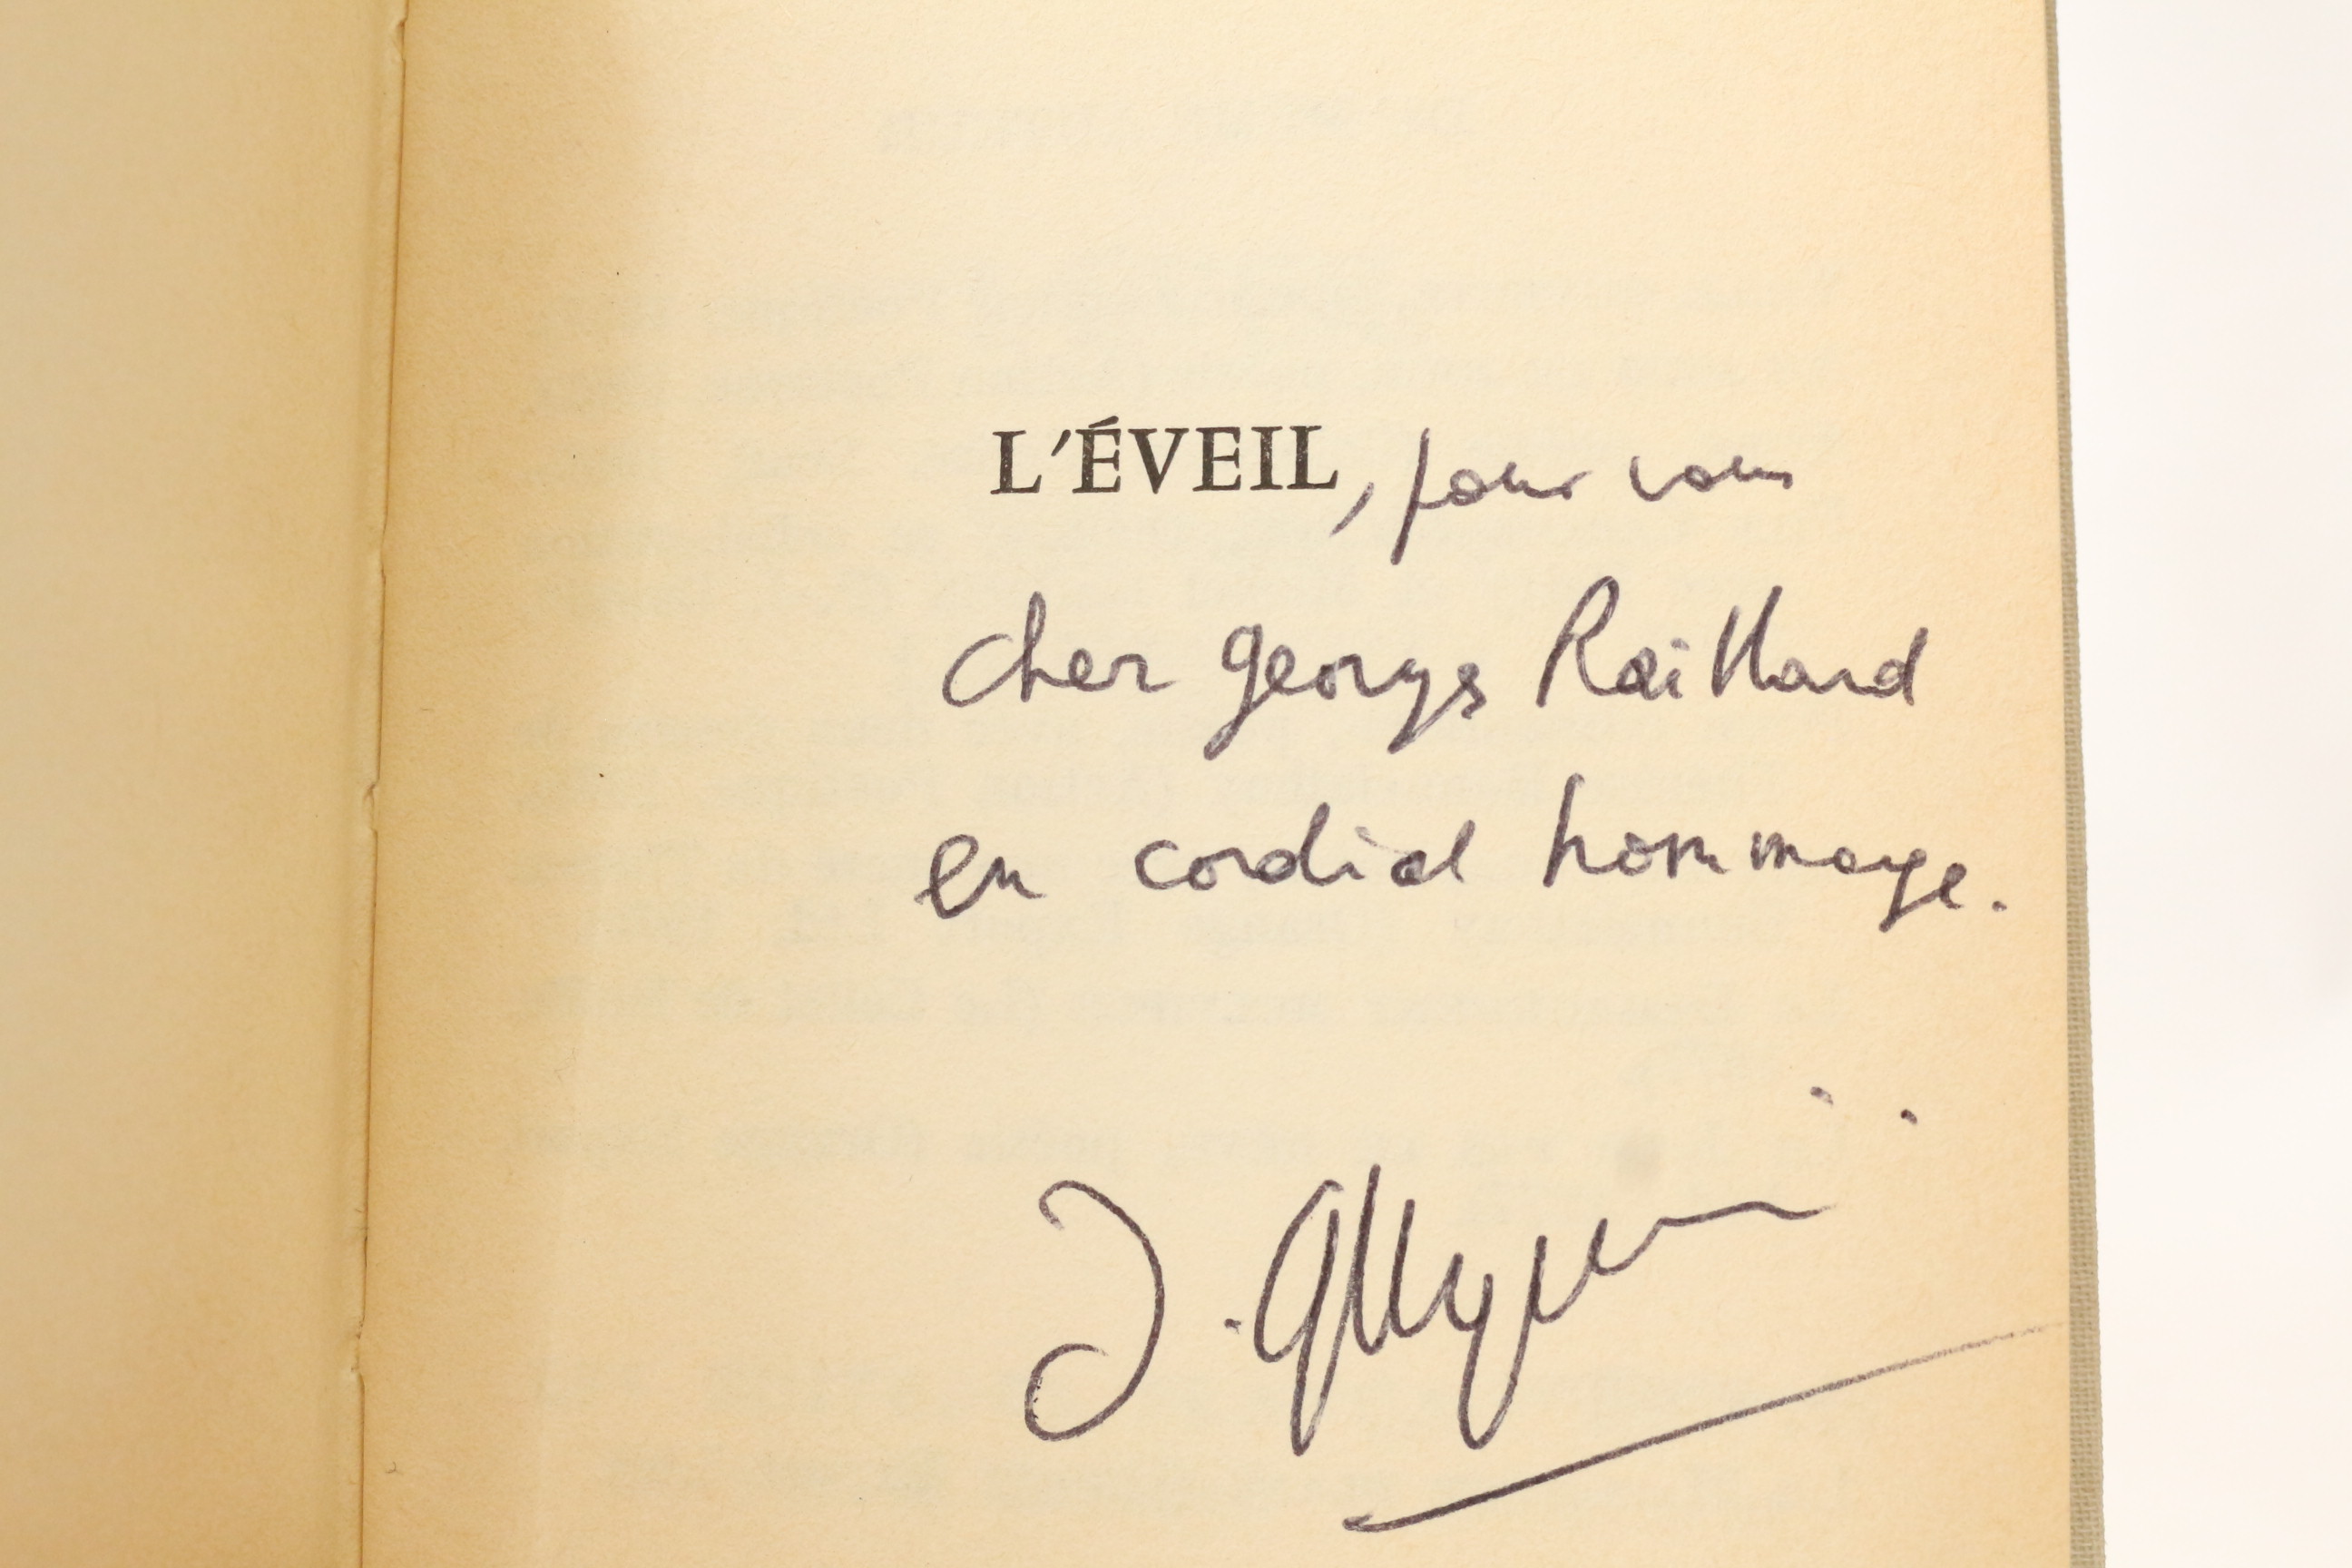 L'ÉVEIL, pour vous
cher Georges Raillard
en cordial hommage.
J.